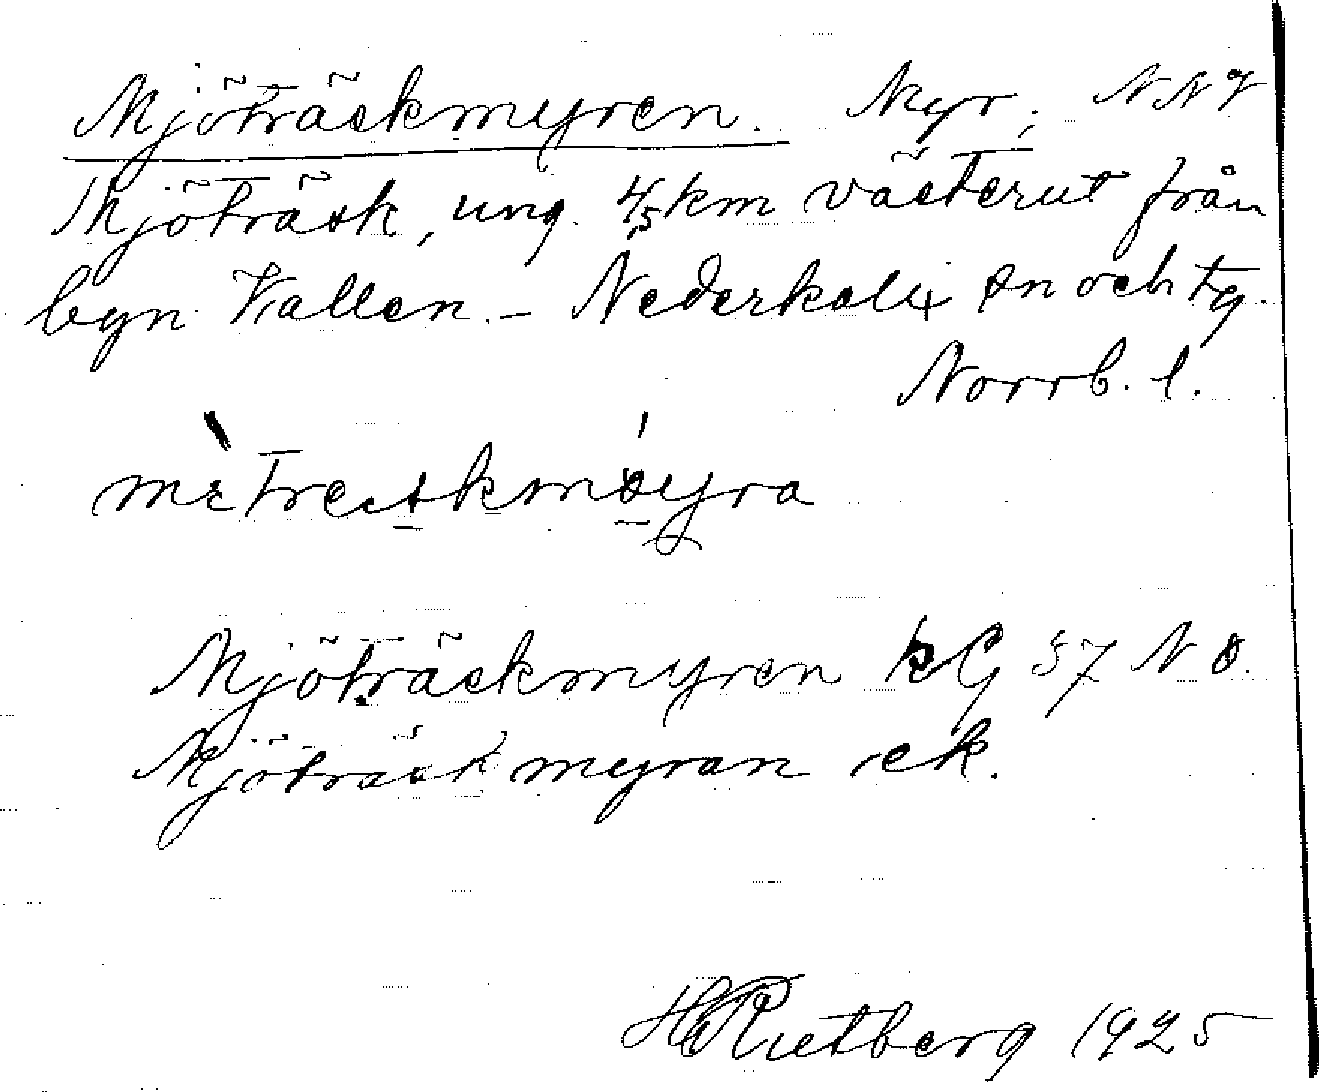 Mjöträskmyren. Myr, NNV
Mjöträsk, ung. 4,5 km västerut från
byn Vallen. – Nederkalix sn och tg.
Norrb. l.
Mjöträskmyren kG 57 NO.
Mjöträskmyran ek.
H Rutberg 1925